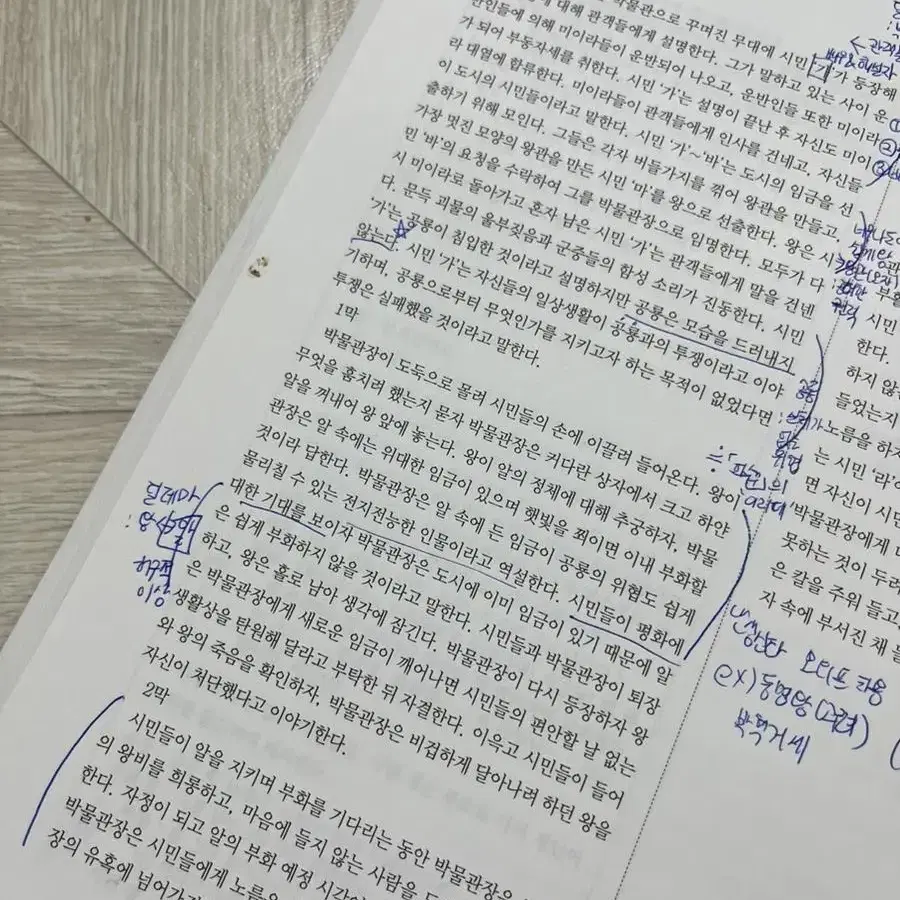 박물관으로 꾸며진 무대에 시민 '가'가 등장해
에 대해 관객들에게 설명한다. 그가 말하고 있는 사이 운
반인들에 의해 미이라들이 운반되어 나오고, 운반인들 또한 미이라
가 되어 부동자세를 취한다. 시민 '가'는 설명이 끝난 후 자신도 미이
라 대열에 합류한다. 미이라들이 관객들에게 인사를 건네고, 자신들
이 도시의 시민들이라고 말한다. 시민 '가'~'바'는 도시의 임금을 선
출하기 위해 모인다. 그들은 각자 버들가지를 꺾어 왕관을 만들고,
가장 멋진 모양의 왕관을 만든 시민 '마'를 왕으로 선출한다. 왕은 시
민 '바'의 요청을 수락하여 그를 박물관장으로 임명한다. 모두가 다
시 미이라로 돌아가고 혼자 남은 시민 '가'는 관객들에게 말을 건넨
다. 문득 괴물의 울부짖음과 군중들의 함성 소리가 진동한다. 시민
'가'는 공룡이 침입한 것이라고 설명하지만 공룡은 모습을 드러내지
않는다. 시민 '가'는 자신들의 일상생활이 공룡과의 투쟁이라고 이야
기하며, 공룡으로부터 무엇인가를 지키고자 하는 목적이 없었다면
투쟁은 실패했을 것이라고 말한다.
1막
박물관장이 도둑으로 몰려 시민들의 손에 이끌려 들어온다. 왕이
무엇을 훔치려 했는지 묻자 박물관장은 커다란 상자에서 크고 하얀
알을 꺼내어 왕 앞에 놓는다. 왕이 알의 정체에 대해 추궁하자, 박물
관장은 알 속에는 위대한 임금이 있으며 햇빛을 쬐이면 이내 부화할
것이라 답한다. 박물관장은 알 속에 든 임금이 공룡의 위협도 쉽게
물리칠 수 있는 전지전능한 인물이라고 역설한다. 시민들이 평화에
대한 기대를 보이자 박물관장은 도시에 이미 임금이 있기 때문에 알
은 쉽게 부화하지 않을 것이라고 말한다. 시민들과 박물관장이 퇴장
하고, 왕은 홀로 남아 생각에 잠긴다. 박물관장이 다시 등장하자 왕
은 박물관장에게 새로운 임금이 깨어나면 시민들의 편안할 날 없는
생활상을 탄원해 달라고 부탁한 뒤 자결한다. 이윽고 시민들이 들어
와 왕의 죽음을 확인하자, 박물관장은 비겁하게 달아나려 하던 왕을
자신이 처단했다고 이야기한다.
2막
시민들이 알을 지키며 부화를 기다리는 동안 박물관장은
의 왕비를 희롱하고, 마음에 들지 않는 사람을
한다. 자정이 되고 알의 부화 예정 시간이
박물관장은 시민들에게 노름을
장의 유혹에 넘어가
시민
한다.
하지 않
들었는지
노름을 하자
는 시민 '라'
면 자신이 시민
박물관장에게
못하는 것이 두려
은 칼을 주워 들고
자 속에 부서진 채
딜레마
이상
공룡
난생신화 모티프 차용
ex) 동명왕
박혁거세